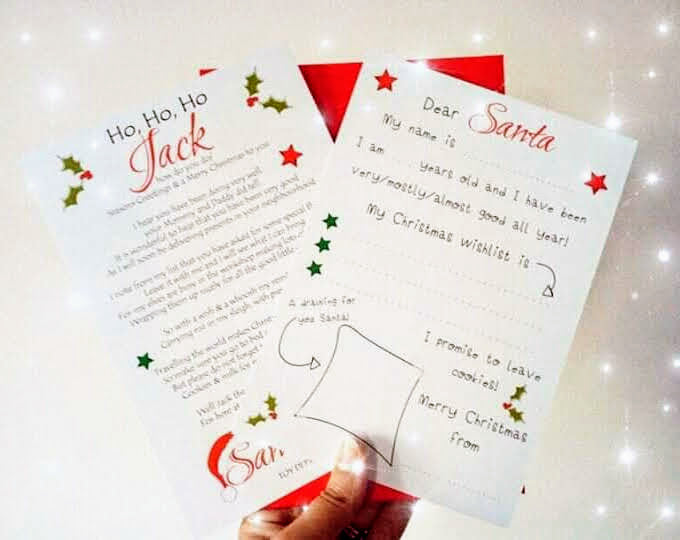 Ho, Ho, Ho
Jack
how do you do?
Seasons Greetings & a Merry Christmas to you
I hear you have been doing very well
your Mommy and Daddy did tell!
It is wonderful to hear that you have been very good
As I will soon be delivering presents in your neighbourhood
I note from my list that you have asked for some special
Leave it with me and I will see what I can bring
For my elves are busy in the workshop making
Wrapping them up ready for all the good little
So with a wish & a whoosh my
Carrying me in my sleigh with
Travelling the world makes
So make sure you go to bed
But please do not forget
Cookies & milk for
Well Jack the
For here at
San
TOY DEP
Dear Santa
My name is
I am years old and I have been
very/mostly/almost good all year!
My Christmas wishlist is
A drawing for
you Santa!
I promise to leave
cookies!
Merry Christmas
from